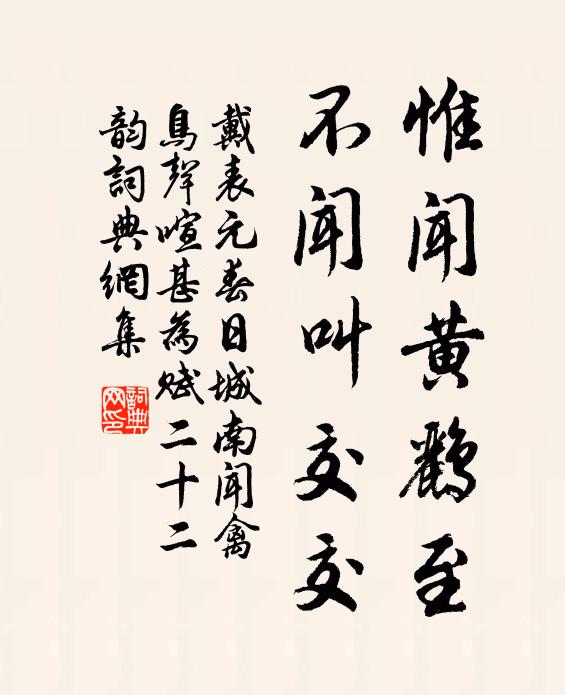 惟闻黄鹂至
不闻叫交交
戴表元春日城南闻禽
鳥聲喧甚為赋二十二
韵詞典網集
詞典网印